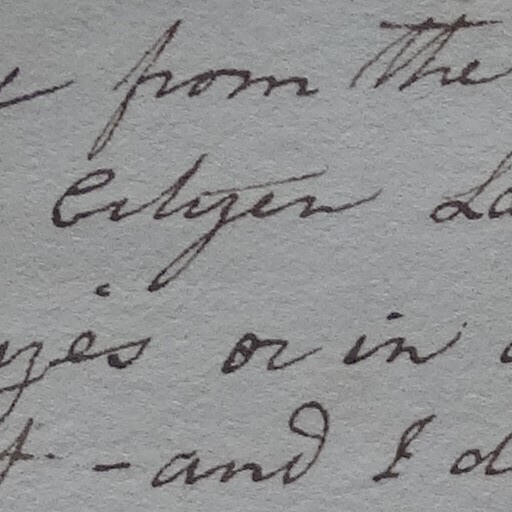 from the
Citizen La
or in
- and I d